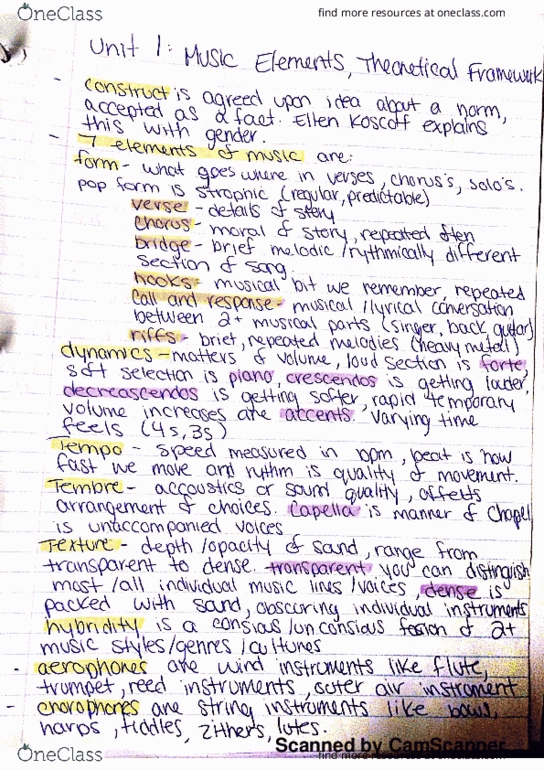 OneClass
find more resources at oneclass.com
Unit 1: Music Elements, Theoretical Framework
- construct is agreed upon idea about a norm,
accepted as a fact. Ellen Koscoff explains
this with gender.
- 7 elements of music are:
form - what goes where in verses, chorus's, solo's.
pop form is strophic (regular, predictable)
verse - details of story
Chorus - moral of story, repeated often
bridge - brief melodic/rythmically different
section of song.
hooks - musical bit we remember, repeated
Call and response - musical/lyrical conversation
between 2+ musical parts (singer, back guitar)
riffs - brief, repeated melodies (heavy metal)
dynamics - matters of volume, loud section is forte,
soft selection is piano, crescendos is getting louder,
decreascendos is getting softer, rapid temporary
volume increases are accents. Varying time
feels (4s, 3s)
Tempo - speed measured in bpm, beat is how
fast we move and rythm is quality of movement.
Tembre - accoustics or sound quality, affects
arrangement of choices. Capella is manner of Chapel
is unaccompanied voices
Texture - depth/opacity of sound, range from
transparent to dense. transparent you can distinguish
most/all individual music lines/voices, dense is
packed with sound, obscuring individual instruments
hybridity is a consious/unconsious fusion of 2+
music styles/genres/cultures
- aerophones are wind instruments like flute,
trumpet, reed instruments, outer air instrument
- chorophones are string instruments like bows,
harps, fiddles, zithers, lutes.
Scanned by CamScanner
OneClass
find more resources at oneclass.com